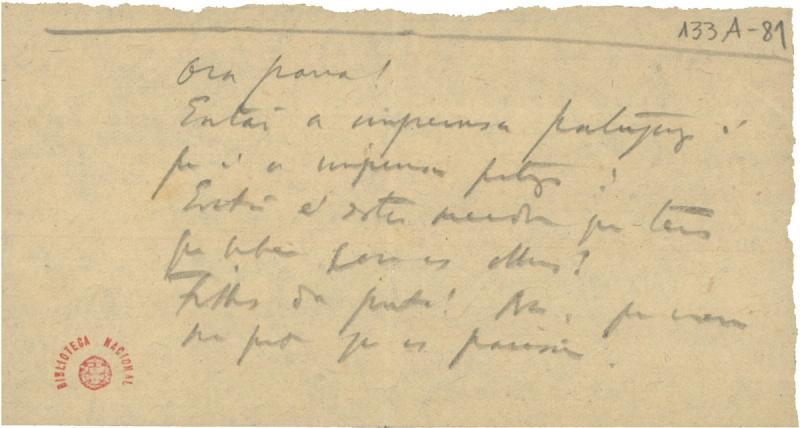 133A-81
Ora porra!
Então a imprensa portugueza é
que é a imprensa portugueza?
Então é esta merda que temos
que beber com os olhos?
Filhos da puta! Não, que nem
ha puta que os parisse.
BIBLIOTECA NACIONAL